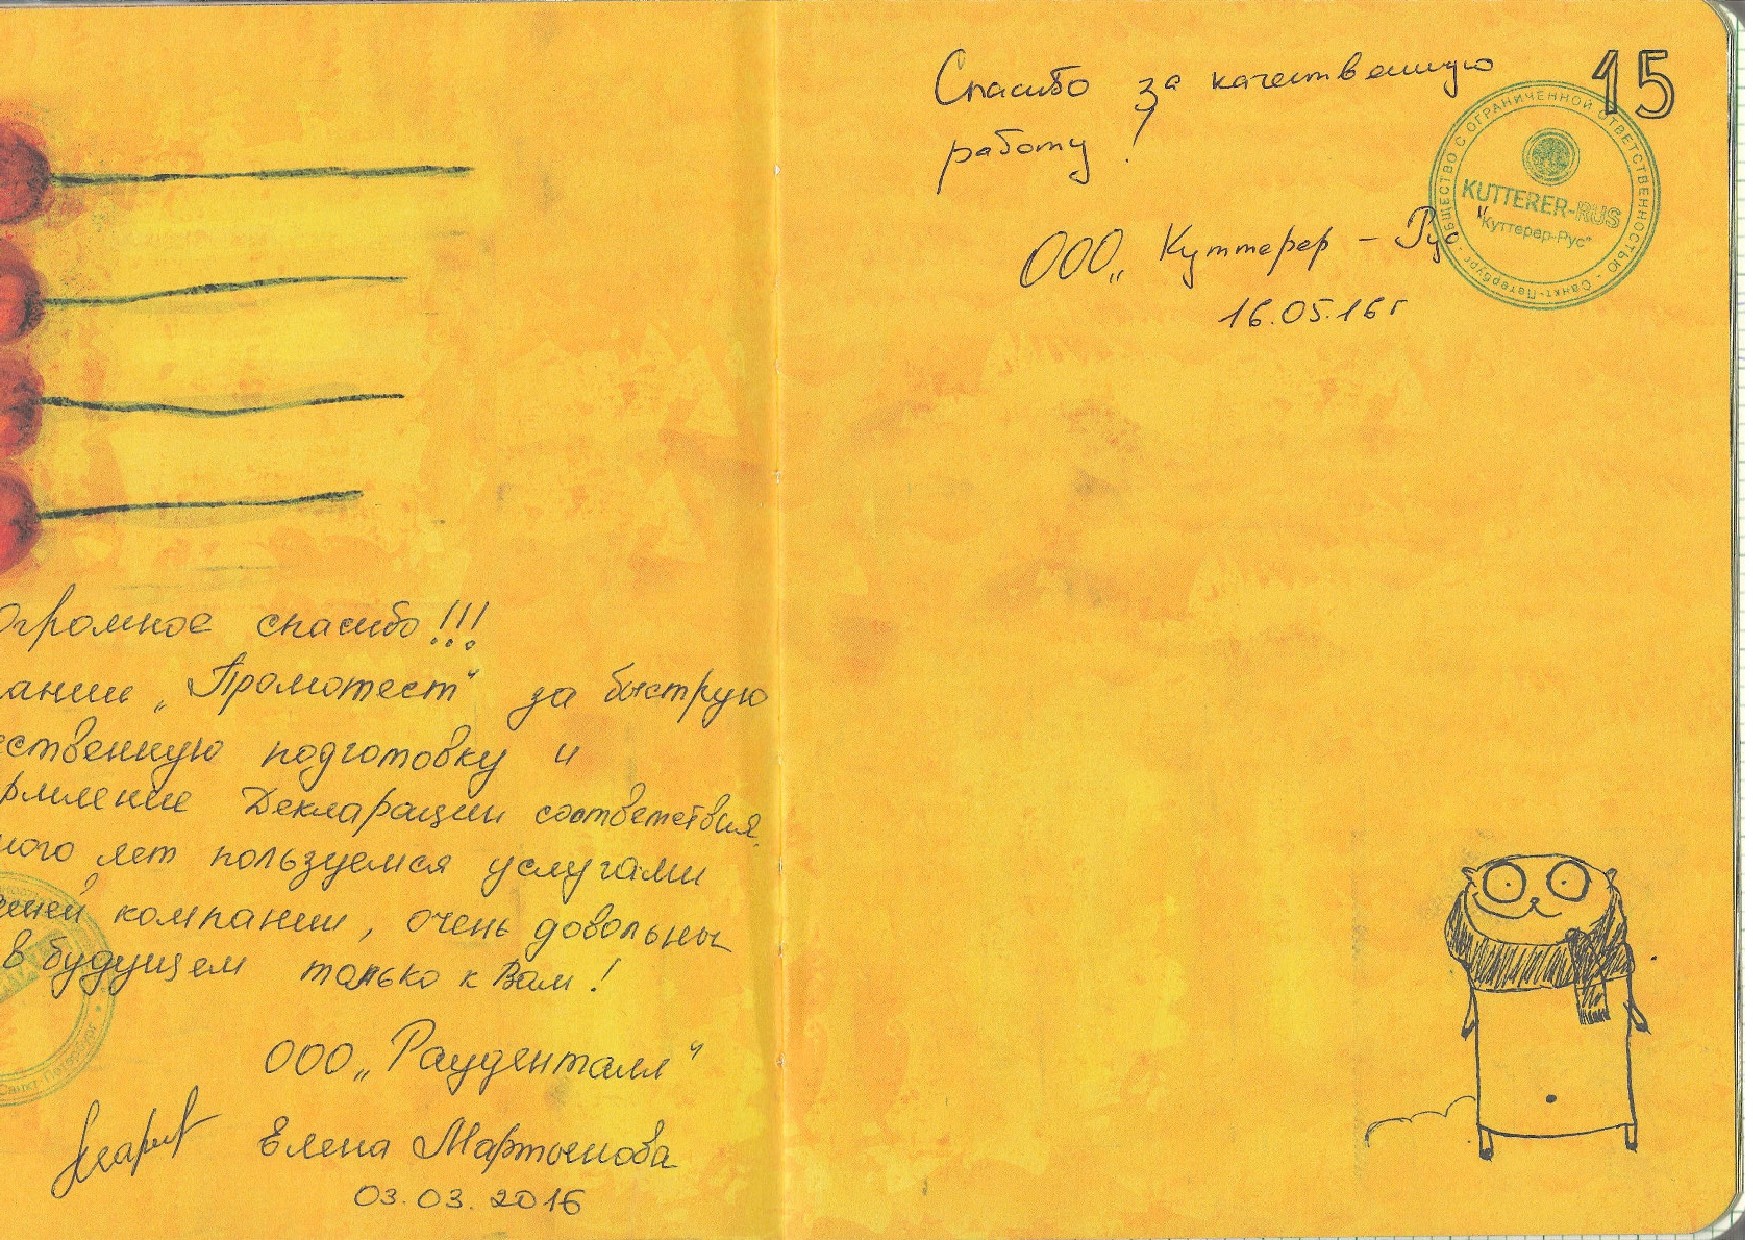 Огромное спасибо!!!
ании „Промотест“ за быструю
ественную подготовку и
рмление Декларации соответствия.
ного лет пользуемся услугами
шей компании, очень довольны
в будущем только к Вам!
ООО „Рауденталл“
Елена Мартынова
03.03.2016
15
Спасибо за качественную
работу!
ООО „Куттерер-Рус“
16.05.16г
ОБЩЕСТВО С ОГРАНИЧЕННОЙ ОТВЕТСТВЕННОСТЬЮ
KUTTERER-RUS
"Куттерер-Рус"
Санкт-Петербург
Санкт-Петербург